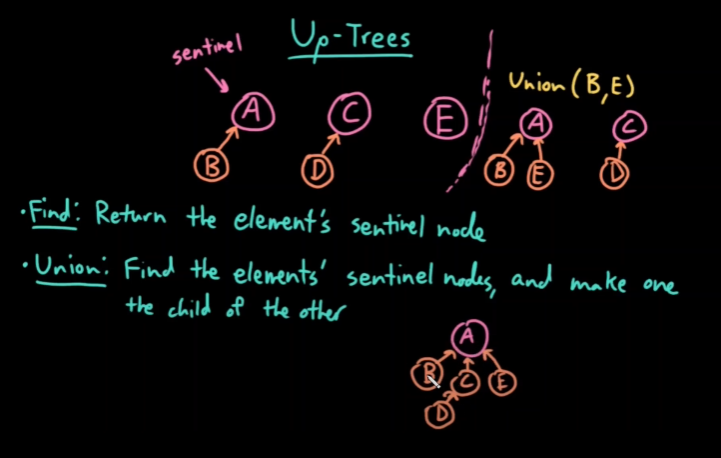 Up-Trees
sentinel
A
C
E
B
D
Union(B,E)
A
C
B
E
D
·Find: Return the element's sentinel node
·Union: Find the elements' sentinel nodes, and make one
the child of the other
A
B
C
E
D